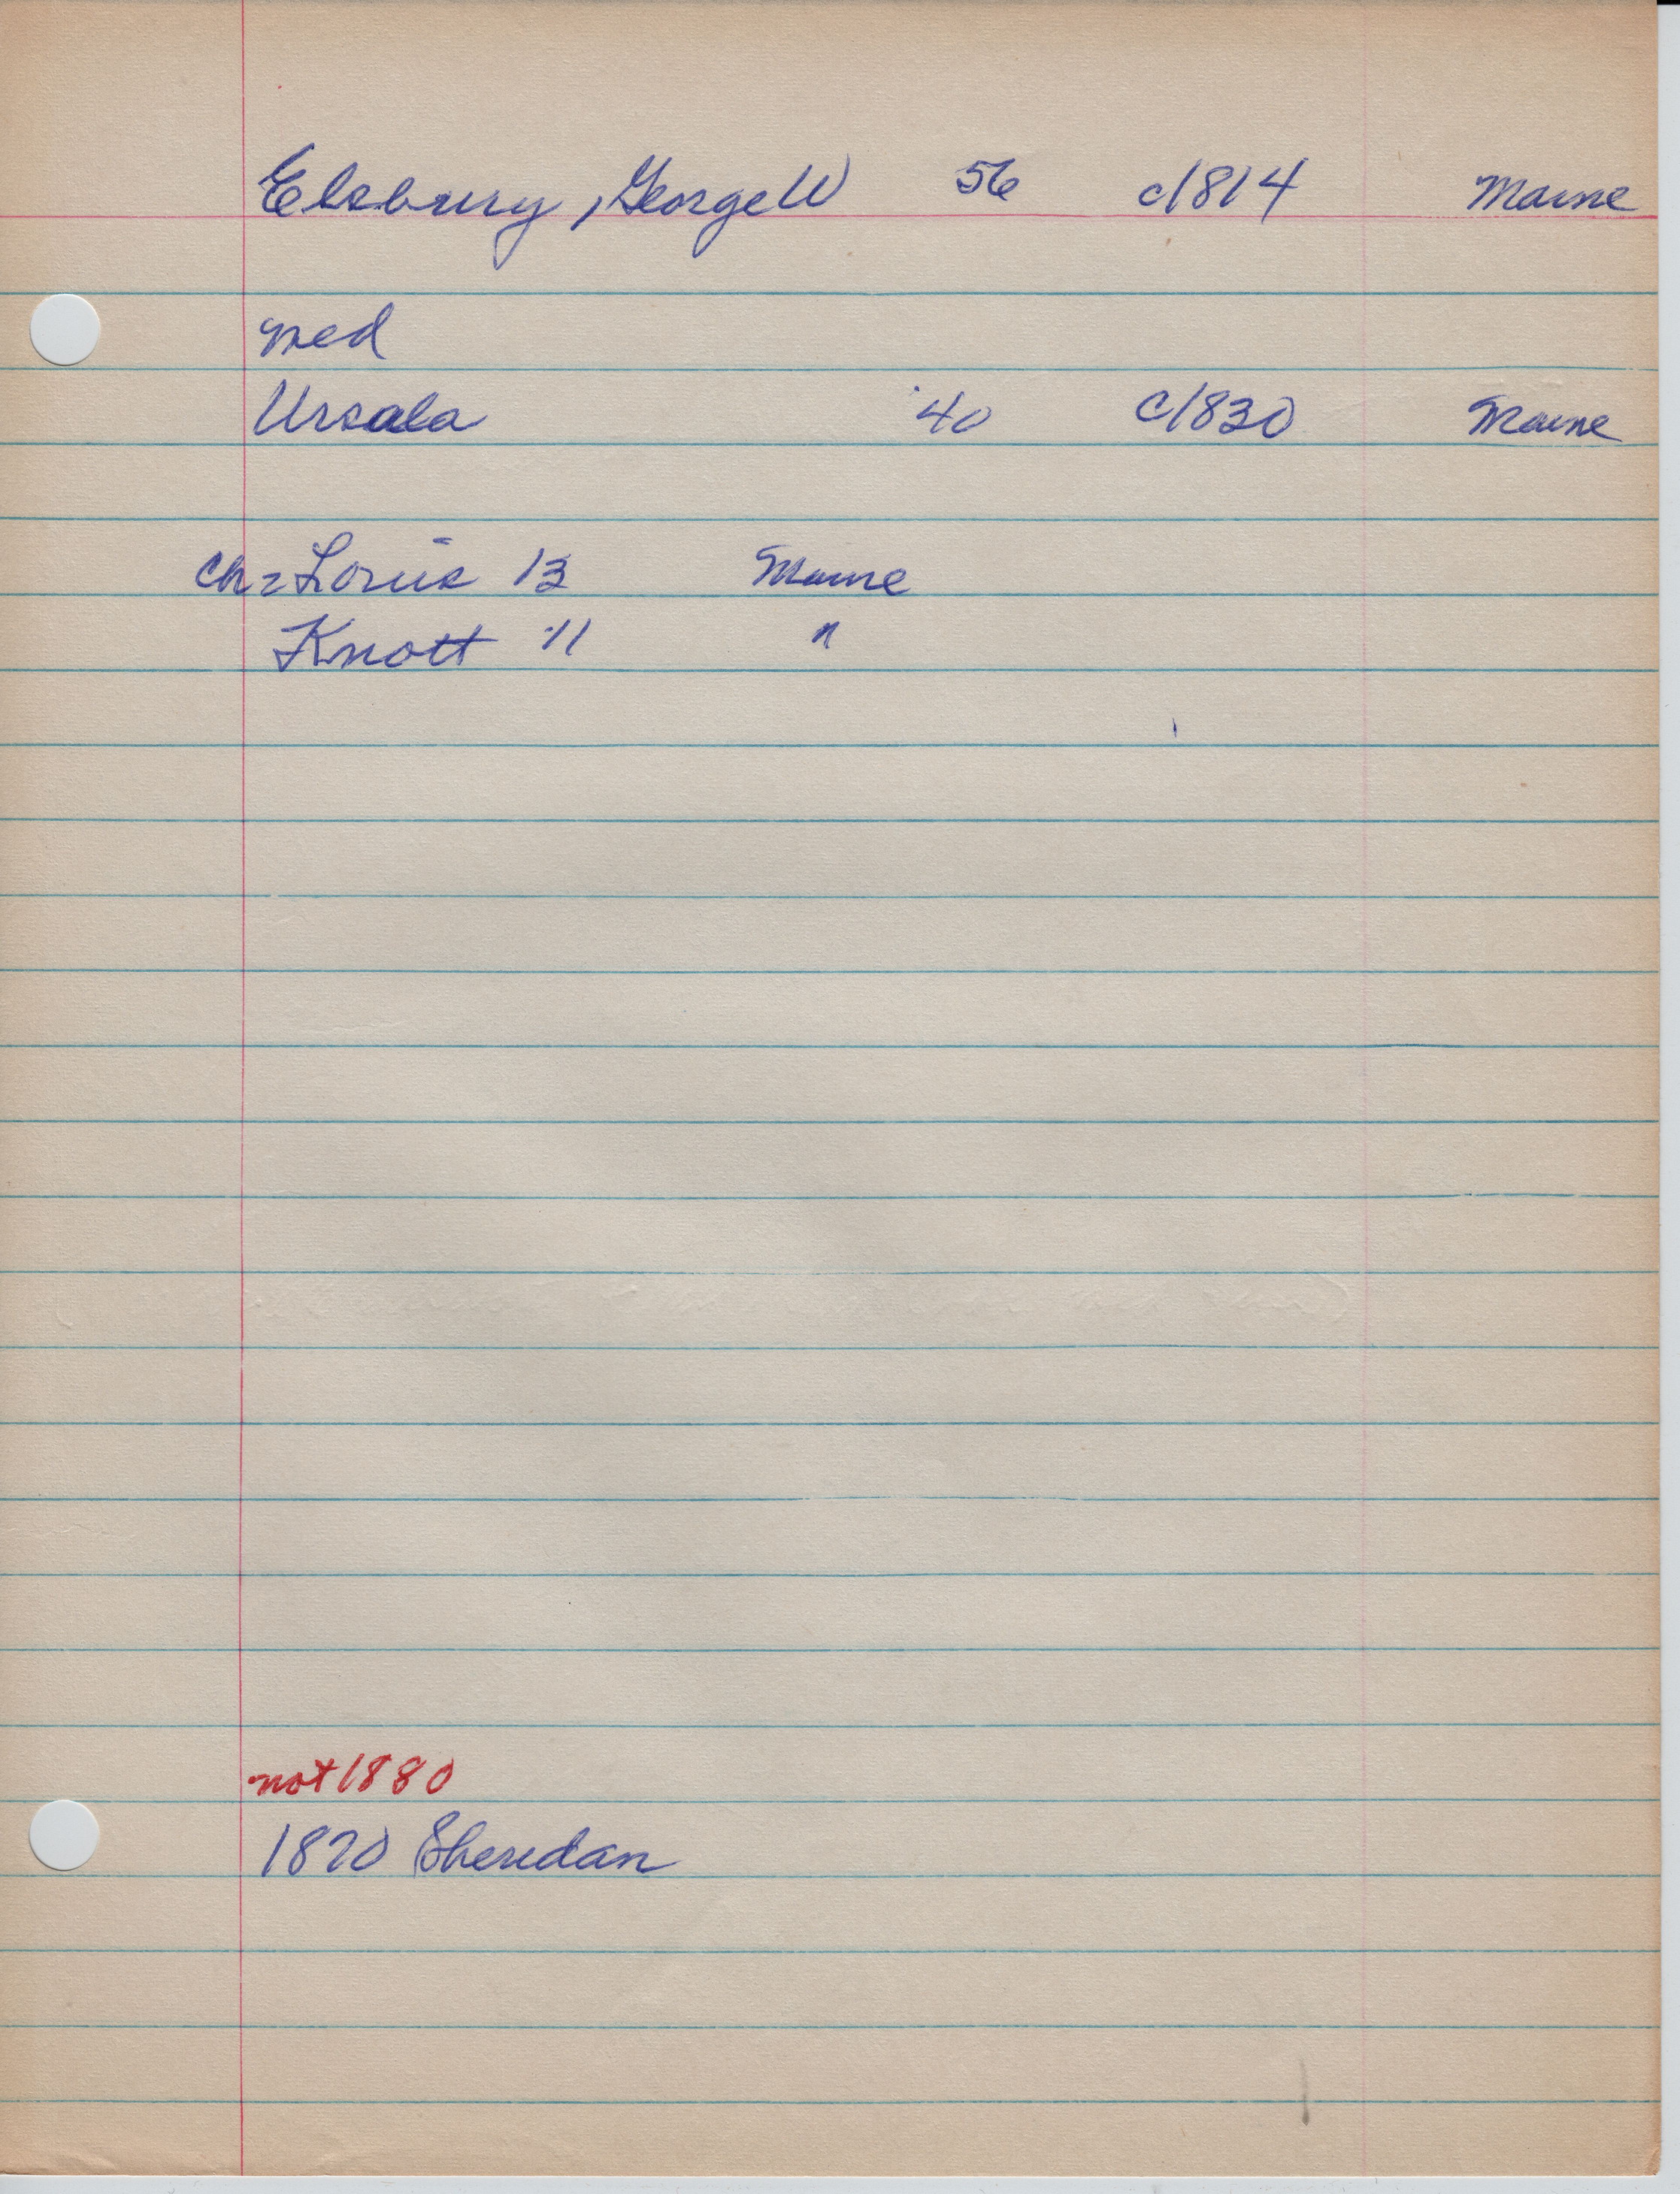 Elsbury, George W 56 c1814 Maine
med
Ursala 40 c1830 Maine
Ch = Louis 13 Maine
Knott 11 "
not 1880
1870 Sheridan